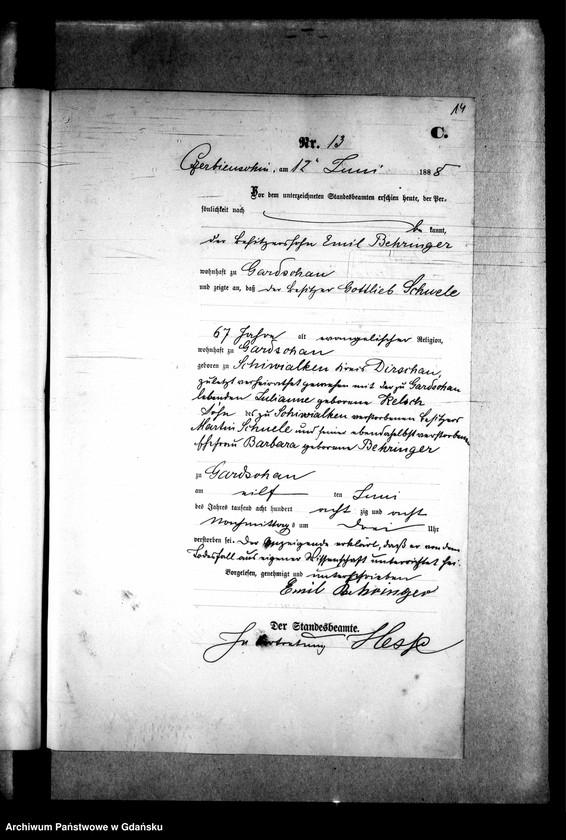 14
C.
Nr. 13
Czerbienschin, am 12ᵗ Juni 1888
Vor dem unterzeichneten Standesbeamten erschien heute, der Per-
sönlichkeit nach
be kannt,
der Besitzersohn Emil Behringer
wohnhaft zu Gardschau
und zeigte an, daß der Besitzer Gottlieb Schuele
67 Jahre alt evangelischer Religion,
wohnhaft zu Gardschau
geboren zu Schiwialken Kreis Dirschau,
zuletzt verheirathet gewesen mit der zu Gardschau
lebenden Julianne geborene Kelsch
Sohn des zu Schiwialken verstorbenen Besitzers
Martin Schuele und seiner ebendaselbst verstorbenen
Ehefrau Barbara geborene Behringer
zu Gardschau
am eilf ten Juni
des Jahres tausend acht hundert acht zig und acht
Nachmittags um drei Uhr
verstorben sei. Der Anzeigende erklärt, daß er von dem
Todesfall aus eigener Wissenschaft unterrichtet sei.
Vorgelesen, genehmigt und unterschrieben
Emil Behringer
Der Standesbeamte.
In Vertretung
Archiwum Państwowe w Gdańsku